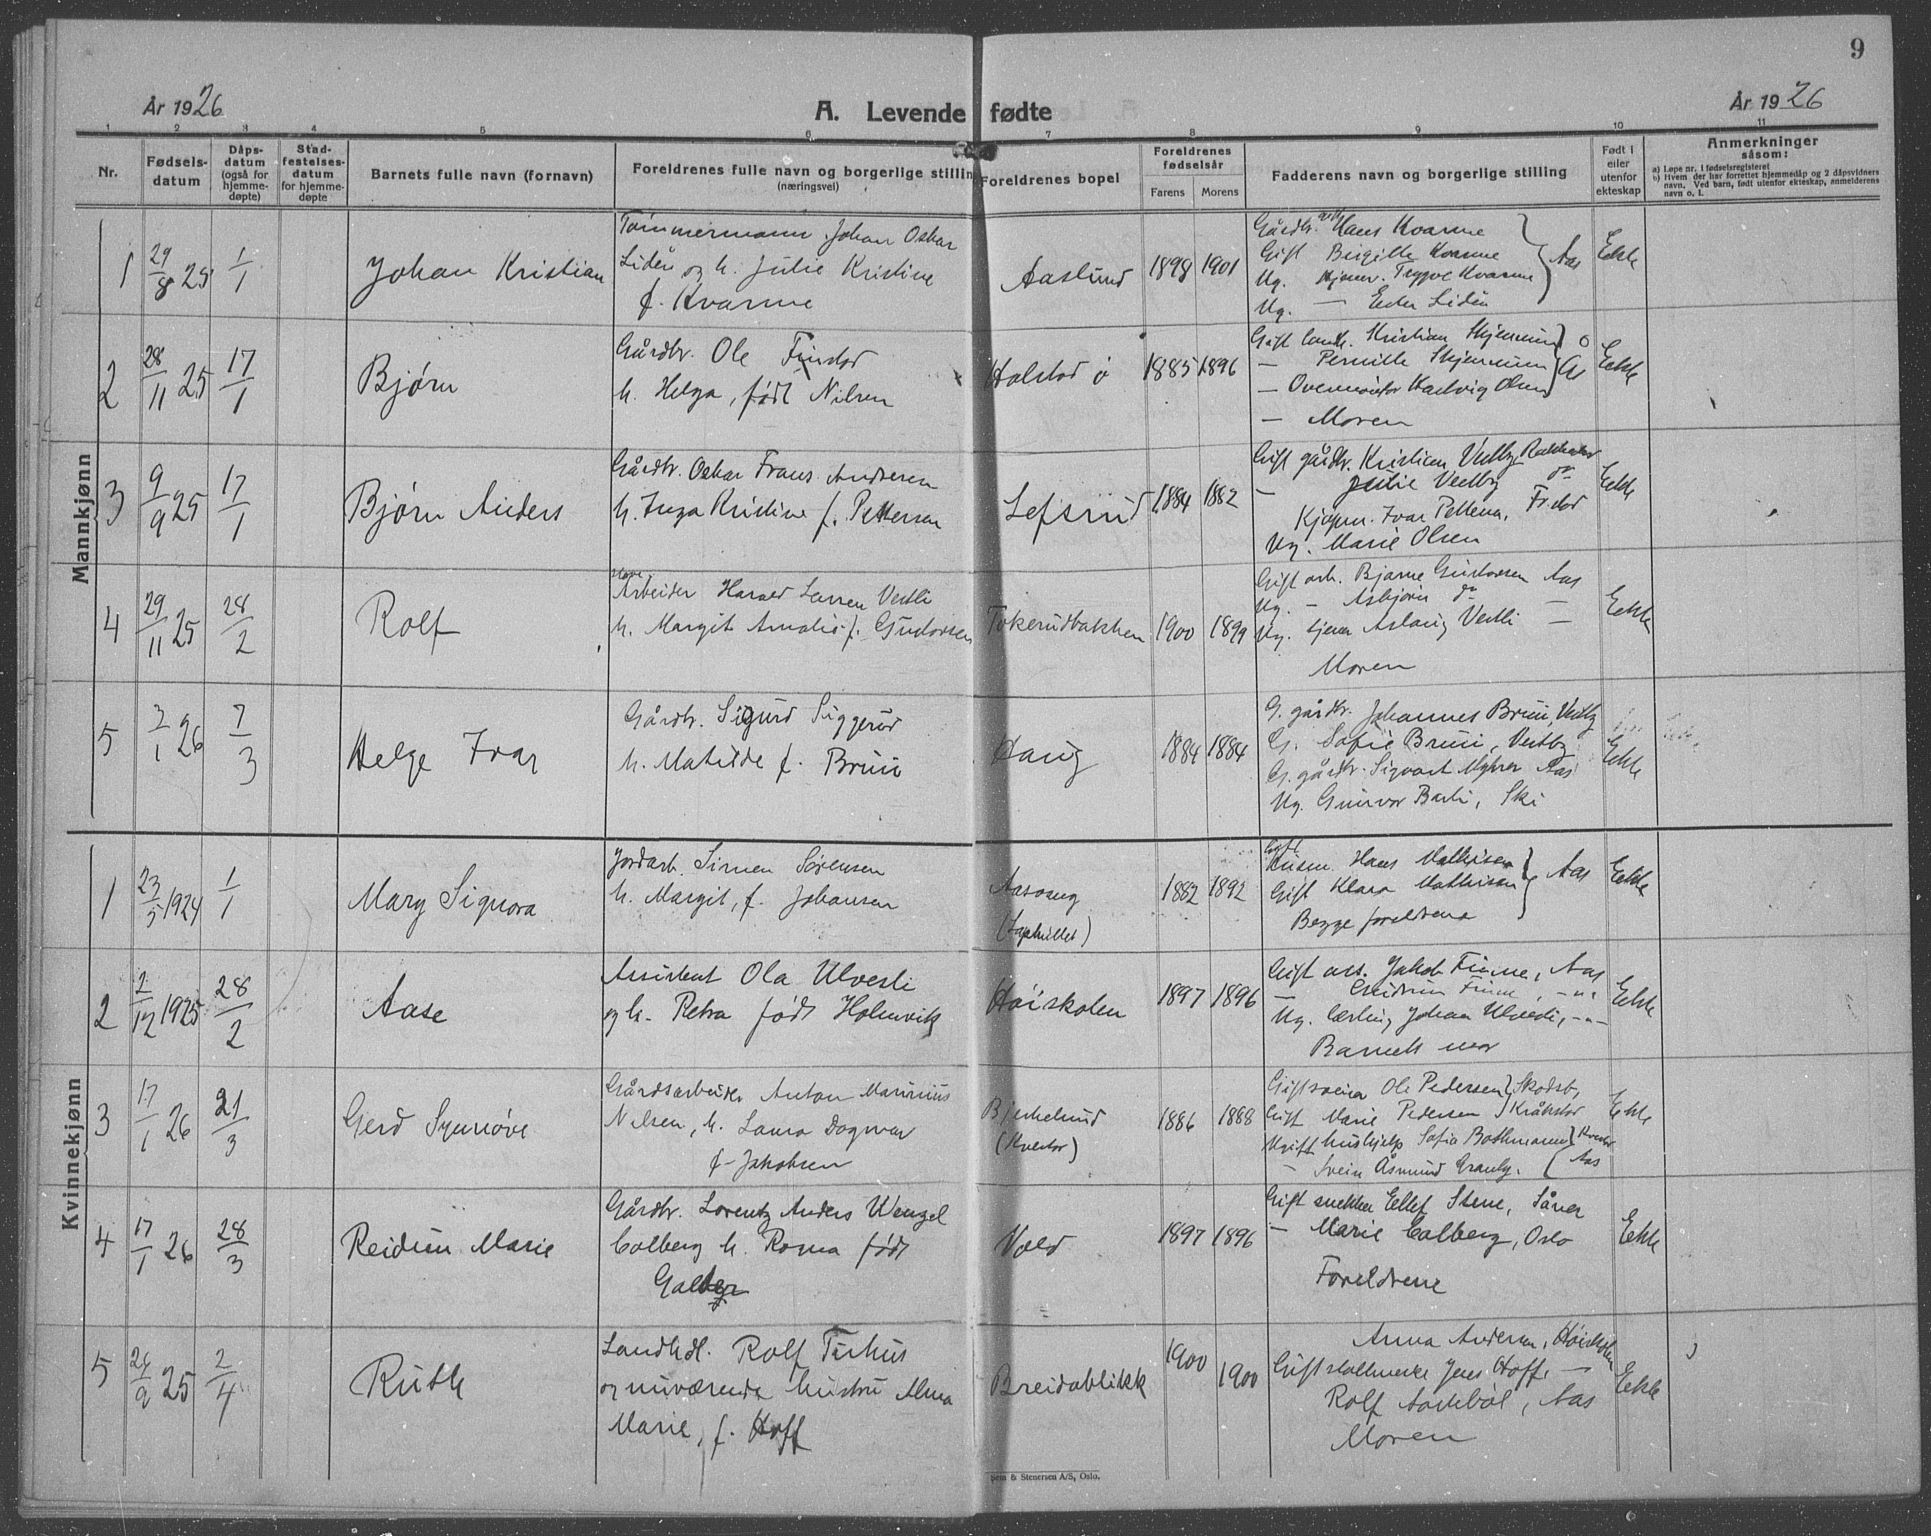 9
År 1926
A. Levende fødte
År 1926
1 2 3 4 5 6 7 8 9 10 11
Nr.
Fødsels-
datum
Dåps-
datum
(også for
hjemme-
døpte)
Stad-
festelses-
datum
for hjemme-
døpte
Barnets fulle navn (fornavn)
Foreldrenes fulle navn og borgerlige stilling
(næringsvei)
Foreldrenes bopel
Foreldrenes
fødselsår
Farens
Morens
Fadderens navn og borgerlige stilling
Født i
eller
utenfor
ekteskap
Anmerkninger
såsom:
a) Løpe nr. i fødselsregisteret
b) Hvem der har forrettet hjemmedåp og 2 dåpsvidners
navn. Ved barn, født utenfor ekteskap, anmelderens
navn o. l.
Mannkjønn
1 29/8 25 1/1 Johan Kristian
Tømmermann Johan Oskar
Lidén og h. Julie Kristine
f. Kvarme
Aaslund 1898 1901
Gårdbr. Hans Kvarme
Gift Birgitte Kvarme
Ug. Trygve Kvarme
Ug. — Lidén
Aas
Ekte
2 28/11 25 17/1 Bjørn
Gårdbr. Ole Finstad
h. Helga, født Nilsen
Holstad ø 1885 1896
Gift landh. Kristian Skjennum
— Pernille Skjennum
— Overmontør Hartvig Olsen
— Moren
Ekte
3 9/9 25 17/1 Bjørn Anders
Gårdbr. Oskar Frans Andresen
h. Inga Kristine f. Pettersen
Lefsrud 1884 1882
Gift gårdbr. Kristian Vestby
— Julie Vestby
Kjøpm. Ivar
Ug. Marie Olsen
Ekte
4 29/11 25 28/2 Rolf
Arbeider Harald Larsen Vestli
h. Margit Amalie f. Gustavsen
Tokerudbakken 1900 1899
Gift arb. Bjarne Gustavsen Aas
Ug. — Asbjørn do
Ug. Aslaug Vestli —
Moren
Ekte
5 7/1 26 7/3 Helge Ivar
Gårdbr. Sigurd Siggerud
h. Matilde f. Bruu
Haug 1884 1884
G. gårdbr. Johannes Bruu, Vestby
G. Sofie Bruu, Vestby
G. gårdbr. Sigvart Myhrer Aas
Ug. Gunvor Barli, Ski
Ekte
Kvinnekjønn
1 23/5 1924 1/1 Mary Signora
Jordarb. Simen Sørensen
h. Margit, f. Johansen
Aasvang
1882 1892
Gift
Hans Mathisen
Gift Klara Mathisen
Begge foreldrene
Aas
Ekte
2 2/12 1925 28/2 Aase
Assistent Ola Ulvesli
og h. Petra født Holmvik
Høiskolen 1897 1896
Gift ass. Jakob Finne, Aas
— Gudrun Finne, -„-
Ug. Johan -„-
Barnets mor
Ekte
3 17/1 26 21/3 Gerd Synnøve
Gårdsarbeider Anton Marinius
Nilsen, h. Laura Dagmar
f. Jakobsen
Bjerkelund
(Kvestor)
1886 1888
Gift Ole Pedersen
Gift Marie Pedersen
Kråkstad
Ugift hushjelp Sofie Bothmann
— Svein Åsmund Granby.
Aas
Ekte
4 17/1 26 28/3 Reidun Marie
Gårdbr. Lorentz Anders Wenzel
Colberg h. Roma født
Vold 1897 1896
Gift snekker Ellef Stene, Såner
— Marie Colberg, Oslo
Foreldrene
Ekte
5 24/9 25 2/4 Ruth
Landhdl. Rolf
og nuværende hustru Alma
Marie, f. Hoff
Breidablikk 1900 1900
Anna Andersen, Høiskolen
Gift Jens Hoff, —
Rolf Aschbøl, Aas
Moren
Ekte
Sem & Stenersen A/S, Oslo.